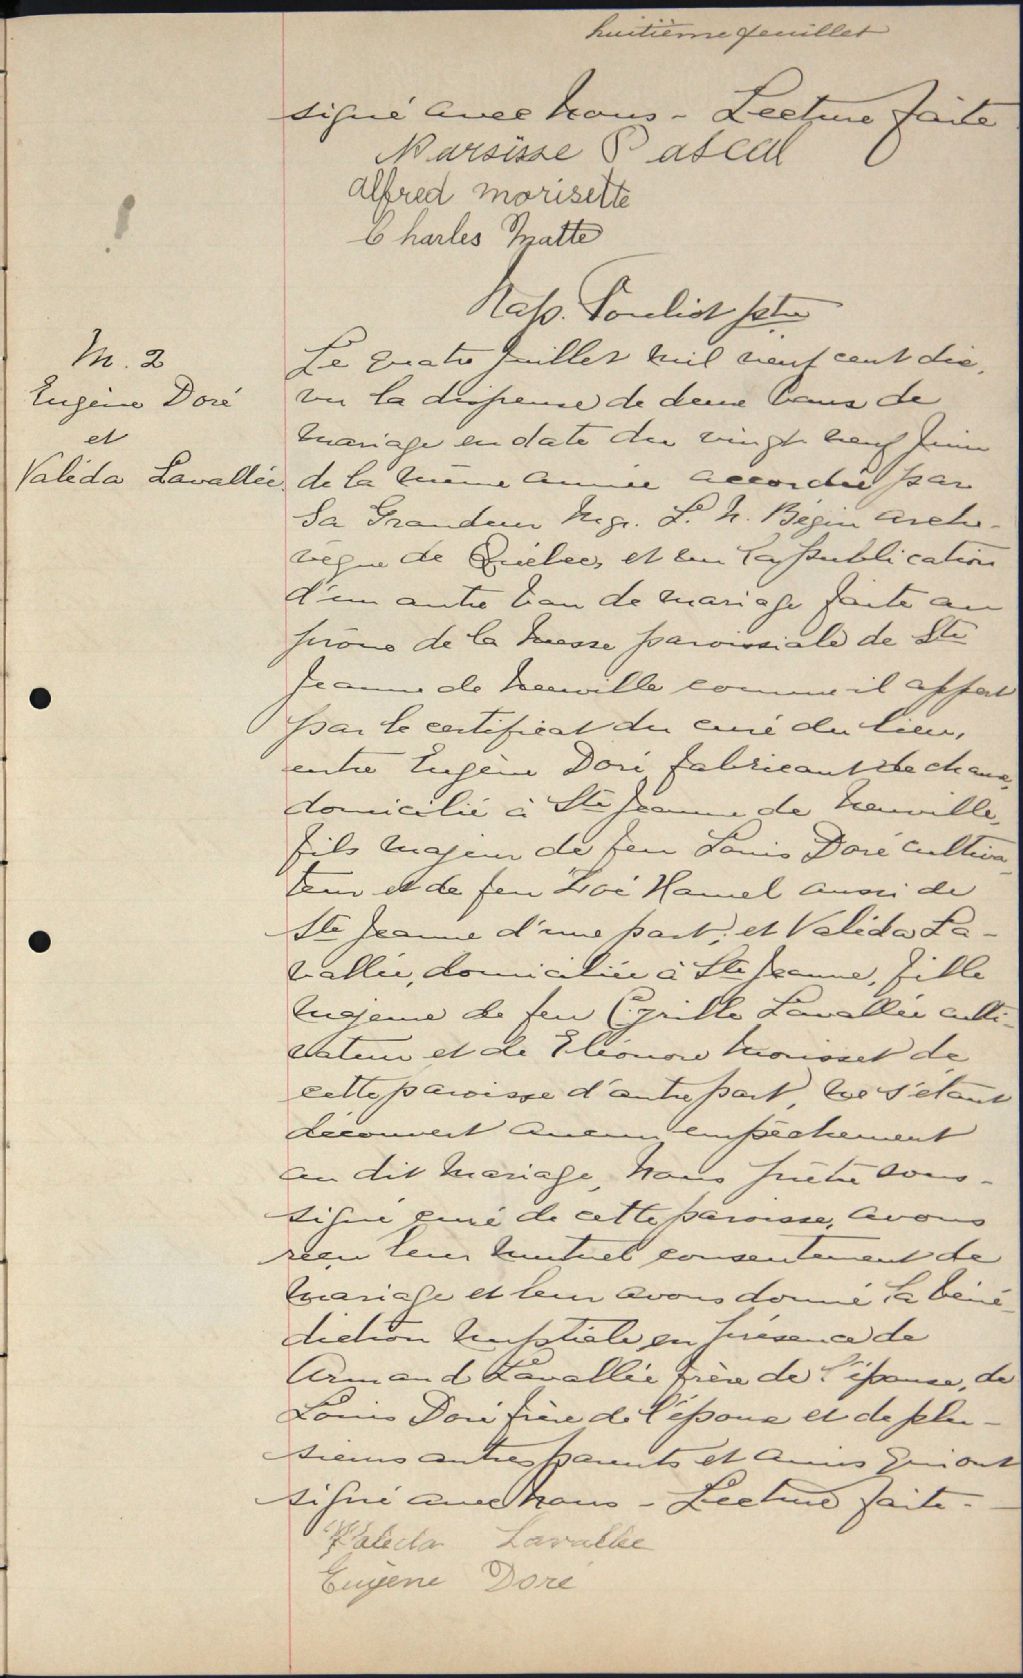 huitième feuillet
signé avec nous - Lecture faite
Narsisse Pascal
alfred morisette
Charles Matte
Nap. Pouliot ptre
M. 2
Eugène Doré
et
Valéda Lavallée.
Le quatre Juillet mil neuf cent dix,
vu la dispense de deux bans de
mariage en date du vingt neuf Juin
de la même année accordée par
Sa Grandeur Mgr. L. N. Bégin arche-
vêque de Québec, et vu la publication
d'un autre ban de mariage faite au
prône de la messe paroissiale de Ste
Jeanne de Neuville comme il appert
par le certificat du curé du lieu,
entre Eugène Doré fabricant de chaux,
domicilié à Ste Jeanne de Neuville,
fils majeur de feu Louis Doré cultiva-
teur et de feu Zoé Hamel aussi de
Ste Jeanne d'une part; et Valéda La-
vallée, domiciliée à Ste Jeanne, fille
majeure de feu Cyrille Lavallée culti-
vateur et de Eléonore Morisset de
cette paroisse d'autre part, ne s'étant
découvert aucun empêchement
au dit mariage, Nous prêtre sous-
signé curé de cette paroisse, avons
reçu leur mutuel consentement de
mariage et leur avons donné la béné-
diction nuptiale en présence de
Armand Lavallée frère de l'épouse, de
Louis Doré frère de l'époux et de plu-
sieurs autres parents et amis qui ont
signé avec nous - Lecture faite. -
Valéda Lavallée
Eugène Doré